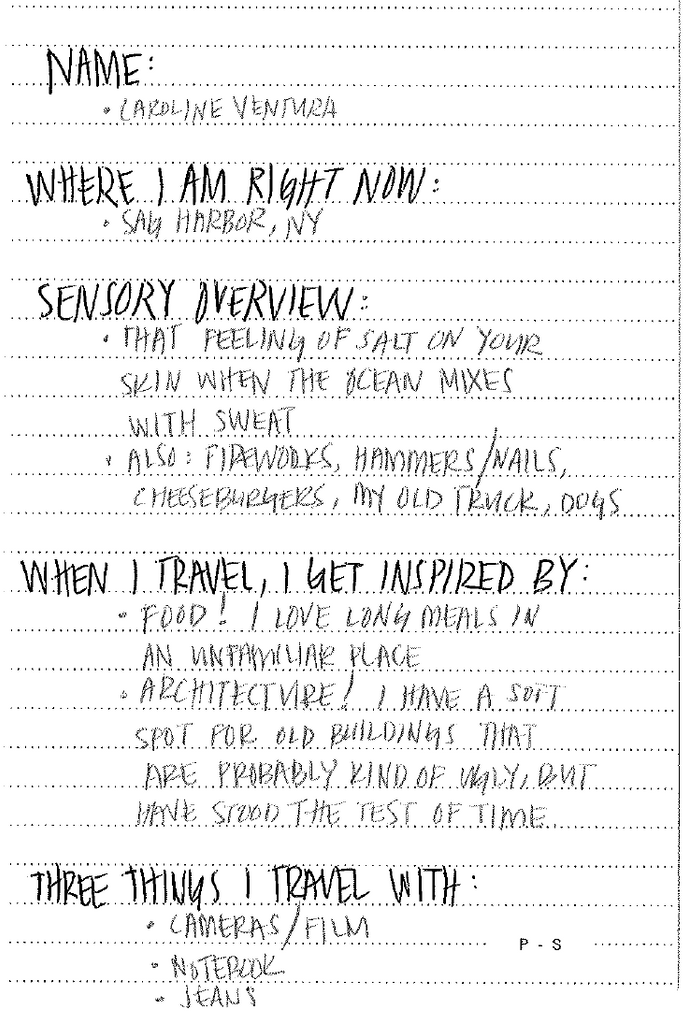 NAME:
• CAROLINE VENTURA
WHERE I AM RIGHT NOW:
• SAG HARBOR, NY
SENSORY OVERVIEW:
• THAT FEELING OF SALT ON YOUR
SKIN WHEN THE OCEAN MIXES
WITH SWEAT
• ALSO: FIREWORKS, HAMMERS/NAILS,
CHEESEBURGERS, MY OLD TRUCK, DOGS
WHEN I TRAVEL, I GET INSPIRED BY:
• FOOD! I LOVE LONG MEALS IN
AN UNFAMILIAR PLACE
• ARCHITECTURE! I HAVE A SOFT
SPOT FOR OLD BUILDINGS THAT
ARE PROBABLY KIND OF UGLY, BUT
HAVE STOOD THE TEST OF TIME.
THREE THINGS I TRAVEL WITH:
• CAMERAS/FILM
P - S
• NOTEBOOK
• JEANS